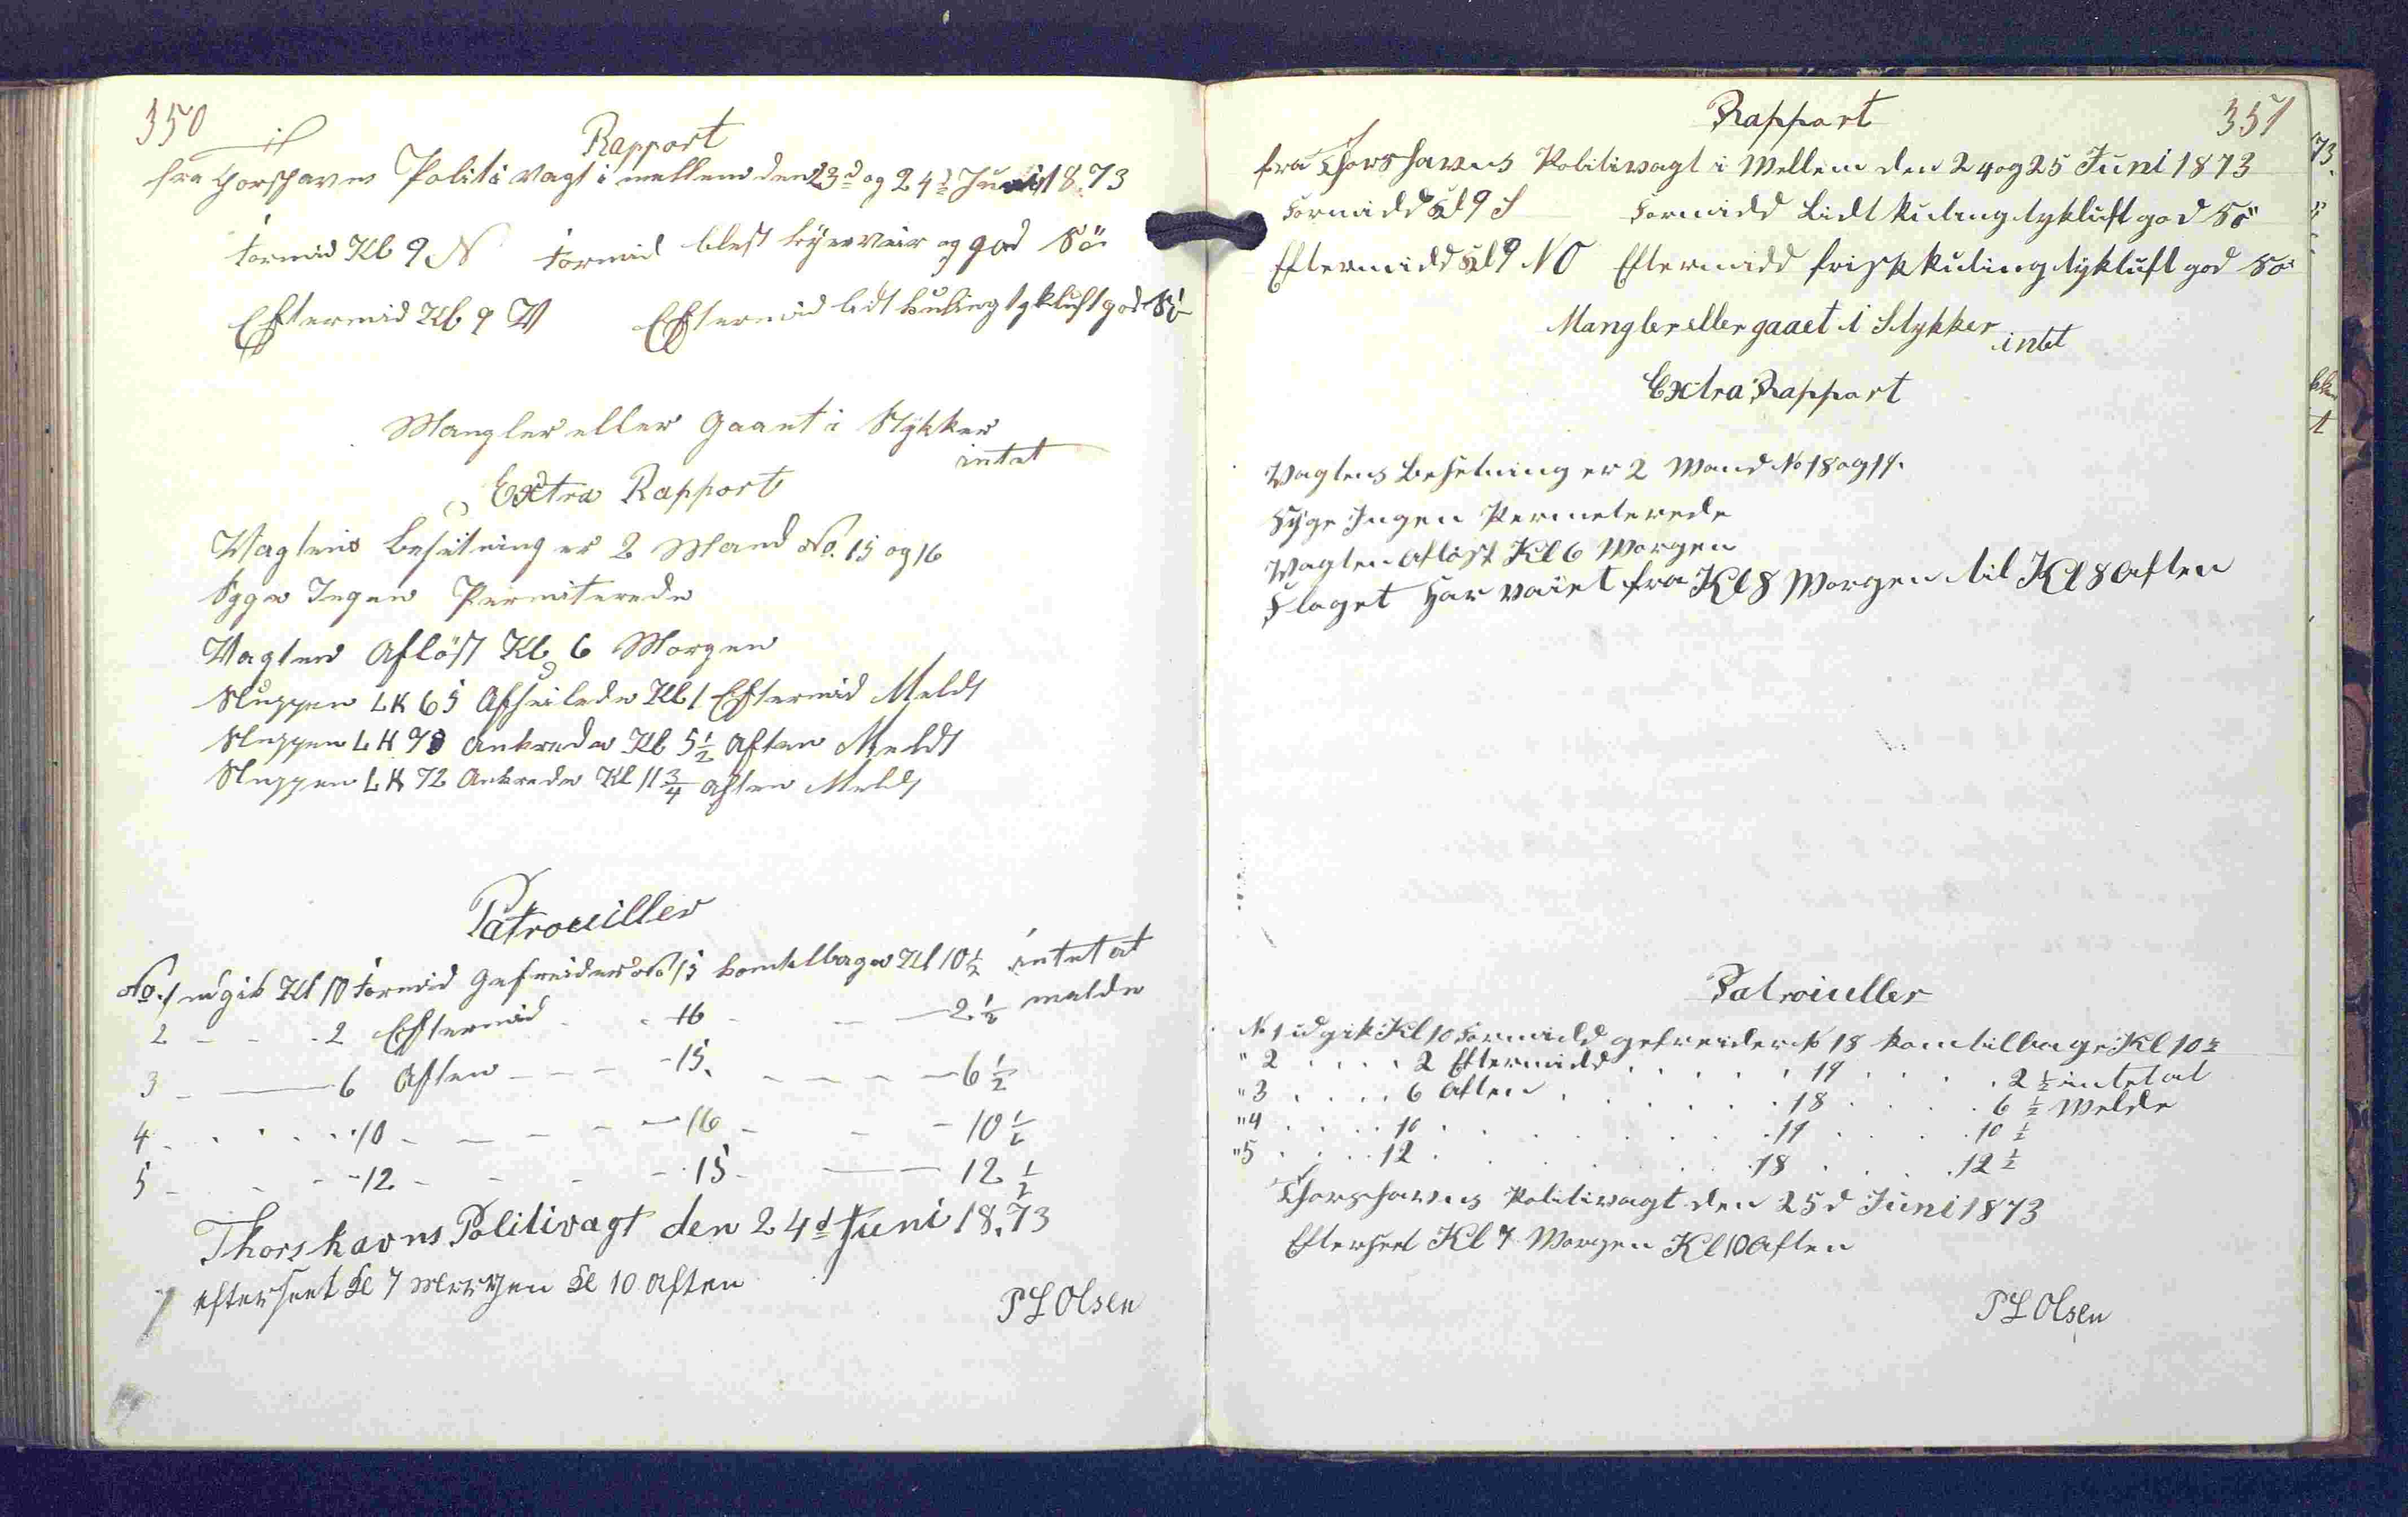 350
Rapport
fra Thorshavns Politivagt i mellem den 23d og 24d Juni 18.73
formid Kl 9 N formid blest bÿevæir og god Sö
Eftermid Kl 9 V Eftermid lidt kuling tykluft god Sö
Mangler eller Gaaet i Stykker
intet
Extra Rapport
Vagtens besætning er 2 Mand No. 15 og 16
Syge Ingen Permiterede
Vagten Aflöst Kl 6 Morgen
Sluppen LK 65 Afseilede Kl 1 Eftermid Meldt
Sluppen LH 98 Ankrede Kl 5½ Aften Meldt
Sluppen LK 72 Ankrede Kl 11¾ Aften Meldt
Patrouiller
No. 1 udgik Kl 10 formid Gefreider No 15 komtelbage Kl 10½ intet at
2 - - - 2 Eftermid - - 16 - - - 2½ melde
3 - - 6 Aften - - - - 15. - - - - 6½
4 - . . . . 10 - - - - - 16 - - - 10½
5 - - - - 12 - - - - 15 - - - 12½
Thorshavns Politivagt den 24d Juni 18.73
efterseet Kl 7 Morgen Kl 10 Aften
P L Olsen
351
Rapport
fra Thorshavns Politivagt i Mellem den 24 og 25 Juni 1873
Formidd Kl 9 S Formidd Lidt kuling tykluft god Sö
Eftermidd Kl 9 NO Eftermidd frisk kuling tykluft god Sö
Mangler eller gaaet i Stykker
intet
Extra Rapport
Vagtens Besetning er 2 Mand No 18 og 19.
Syge Ingen Permeterede
Vagten Aflöst Kl 6 Morgen
Flaget Har vaiet fra Kl 8 Morgen til Kl 8 Aften
Patrouller
No 1 udgik Kl 10 Formidd gefreider No 18 kom tilbage Kl 10½
" 2 . . . . 2 Eftermidd . . . . . 19 . . . . 2½ intet at
" 3 . . . . 6 Aften . . . . . . 18 . . . . 6½ Melde
" 4 . . . . 10 . . . . . . . . 19 . . . . 10½
" 5 . . . . 12 . . . . . . . 18 . . . . 12½
Thorshavns Politivagt den 25d Juni 1873
Efterseet Kl 7 Morgen Kl 10 Aften
P L Olsen